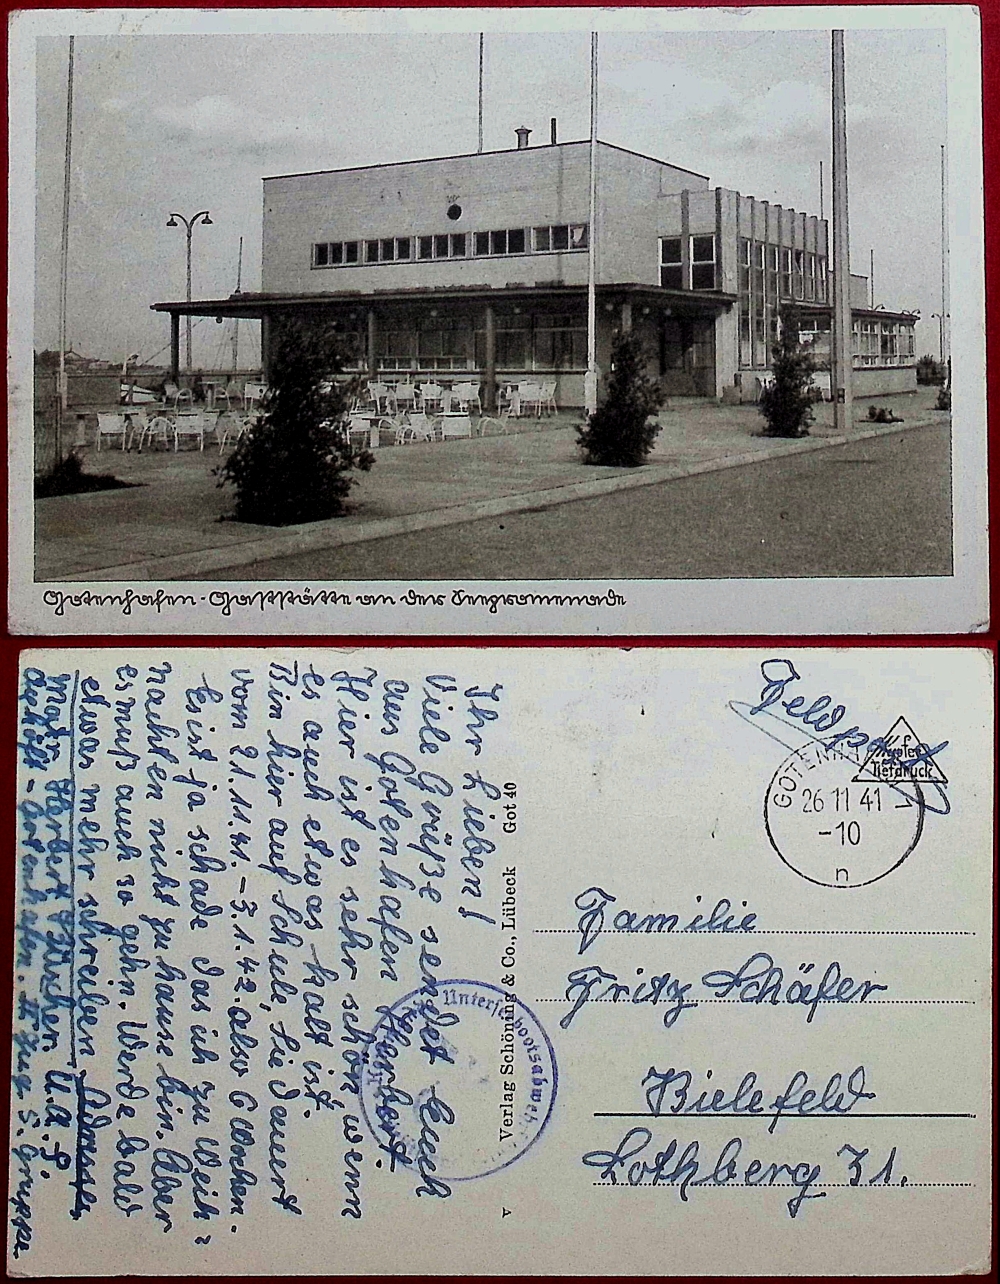 Gotenhafen - Gaststätte an der Seepromenade
Feldpost
Kupfer
Tiefdruck
GOTENHAFEN 1
26 11 41
-10
n
Familie
Fritz Schäfer
Bielefeld
Lothberg 31.
v Verlag Schöning & Co., Lübeck Got 40
Unterseebootsabwehr
Ihr Lieben!
Viele Grüße sendet Euch
aus Gotenhafen Herbert
Hier ist es sehr schön, wenn
es auch etwas kalt ist.
Bin hier auf Schule, Sie dauert
vom 21.11.41. - 3.1.42. also 6 Wochen.
Es ist ja schade das ich zu Weih=
nachten nicht zu hause bin. Aber
es muß auch so gehn. Werde bald
etwas mehr schreiben Adresse.
Matr. Herbert U.A.S.
Gotenhafen. II Zug 5. Gruppe